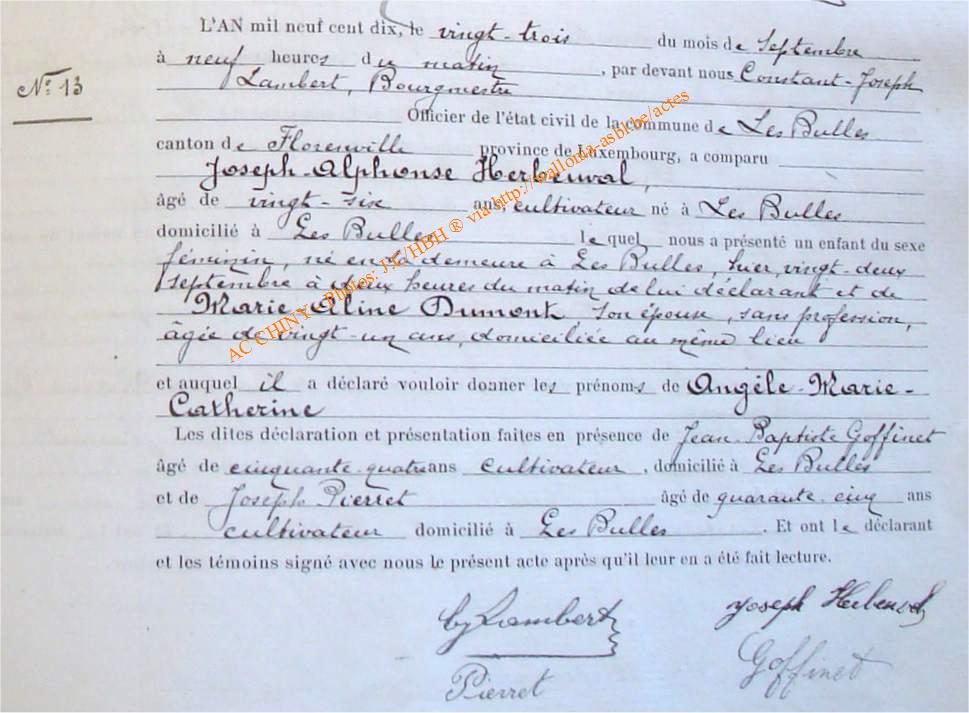 L'AN mil neuf cent dix, le vingt-trois du mois de Septembre
à neuf heures du matin, par devant nous Constant-Joseph
N° 13
Lambert, Bourgmestre
Officier de l'état civil de la commune de Les Bulles
canton de Florenville province de Luxembourg, a comparu
Joseph-Alphonse Herbeuval,
âgé de vingt-six ans, cultivateur né à Les Bulles
domicilié à Les Bulles lequel nous a présenté un enfant du sexe
féminin, né en sa demeure à Les Bulles, hier, vingt-deux
septembre à deux heures du matin de lui déclarant et de
Marie-Aline Dumont son épouse, sans profession,
âgée de vingt-un ans, domiciliée au même lieu
et auquel il a déclaré vouloir donner les prénoms de Angèle-Marie-
Catherine
Les dites déclaration et présentation faites en présence de Jean-Baptiste Goffinet
âgé de cinquante-quatre ans cultivateur, domicilié à Les Bulles
et de Joseph Pierret âgé de quarante-cinq ans
cultivateur domicilié à Les Bulles. Et ont le déclarant
et les témoins signé avec nous le présent acte après qu'il leur en a été fait lecture.
Lambert Joseph Herbeuval
Pierret Goffinet
AC CHINY - Photos: J.V/HBH ® via http://walloma-asbl.be/actes